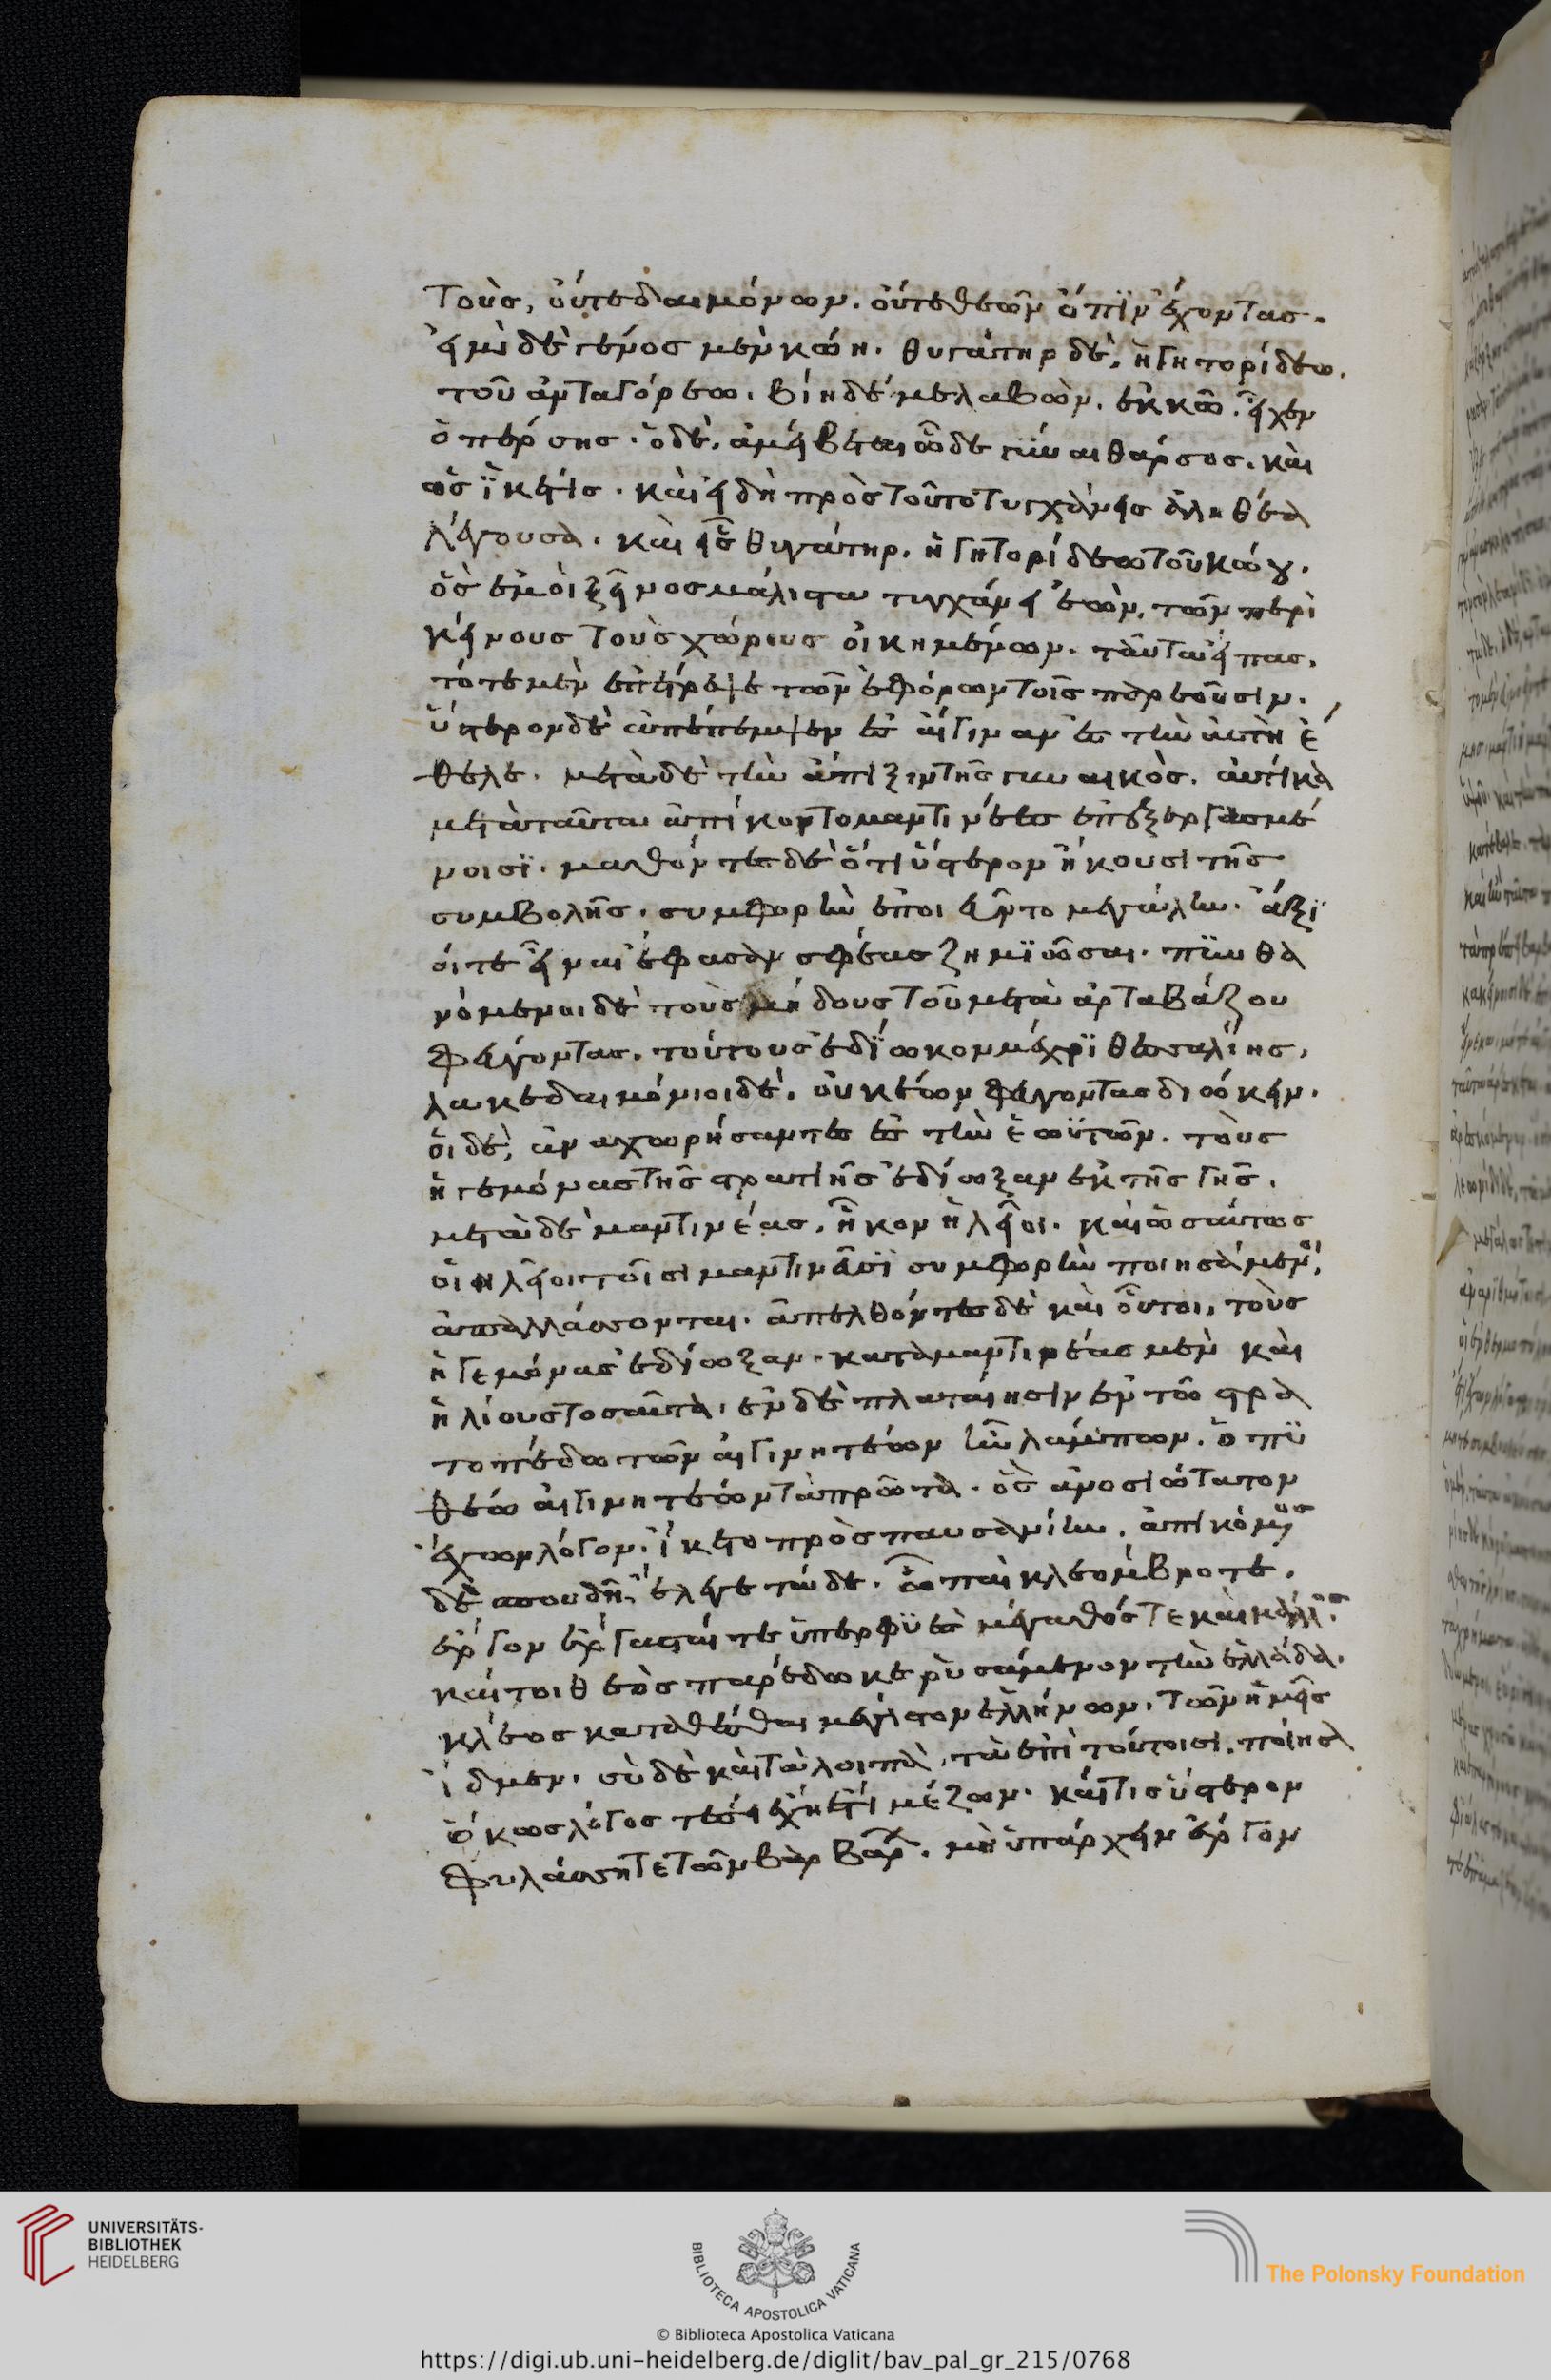 τοὺς, οὔτε δαιμόνων. οὔτε θεῶν ὄπϊν ἔχοντας.
εἰμὶ δὲ γένος μὲν κώη. θυγάτηρ δὲ, ἡγητορίδεω.
τοῦ ἀνταγόρεω. βίη δέ με λαβὼν. ἐκ κῶ. εἶχεν
ὁ πέρσης. ὁ δὲ, ἀμείβεται ὧδε γύναι θάρσος. καὶ
ὡς ϊκέτις. καὶ εἰ δὴ πρὸς τοῦτο τυγχάνεις ἀληθέα
λέγουσα. καὶ εἶς θυγάτηρ. ἡγητορίδεω τοῦ κώου.
ὃς ἐμοὶ ξεῖνος μάλιστα τυγχάνει ἐὼν, τῶν περὶ
κείνους τοὺς χώρους οἰκημένων. ταῦτα εἴπας.
τότε μὲν ἐπέτρεψε τῶν ἐφόρων τοῖς παρεοῦσιν.
ὕστερον δὲ ἀπέπεμψεν ἐς αἴγιναν ἐς τὴν αὐτὴ ἔ
θελε. μετὰ δὲ τὴν ἄπιξιν τῆς γυναικὸς. αὐτίκα
μετὰ ταῦτα ἀπίκοντο μαντινέες ἐπ' ἐξεργασμέ
νοισϊ. μαθόντες δὲ ὅτι ὕστερον ἥκουσι τῆς
συμβολῆς. συμφορὴν ἐποιεῦντο μεγάλην. ἄξϊ
οί τε εἶναι ἔφασαν σφέας ζημϊῶσαι. πϋνθα
νόμενοι δὲ τοὺς μήδους τοῦ μετὰ ἀρταβάζου
φεύγοντας. τούτους ἐδΐωκον μέχρϊ θεσσαλίης,
λακεδαιμόνιοι δὲ. οὐκ ἔων φεύγοντας διώκειν.
οἱ δὲ, ἀναχωρήσαντες ἐς τὴν ἑωϋτῶν. τοὺς
ἡγεμόνας τῆς στρατιῆς ἐδίωξαν ἐκ τῆς γῆς.
μετὰ δὲ μαντινέας, ἧκον ἠλεῖοι. καὶ ὡσαύτως
οἱ ἠλεῖοι τοῖσι μαντινεῦσϊ συμφορὴν ποιησάμενοι,
ἀπαλλάσσονται. ἀπελθόντες δὲ καὶ οὗτοι, τοὺς
ἡγεμόνας ἐδίωξαν. κατὰ μαντινέας μὲν καὶ
ἠλίους τοσαῦτα, ἐν δὲ πλαταίησιν ἐν τῶ στρα
τοπέδω τῶν αἰγινητέων ἦν λάμπων. ὁ πϋ
θέω αἰγινητέων τὰ πρῶτα. ὃς ἀνοσιώτατον
ἔχων λόγον. ἵκετο πρὸς παυσανίην. ἀπικόμενος
δὲ σπουδῆ ἔλεγε τάδε. ὦ παῖ κλεομβρότε.
ἔργον ἔργασταί τε ὑπερφϋὲς μέγαθός τε καὶ κάλλος.
καί τοι θεὸς παρέδωκε ῥυσάμενον τὴν ἑλλάδα.
κλέος καταθέσθαι μέγιστον ἑλλήνων. τῶν ἡμεῖς
ἴδμεν. σὺ δὲ καὶ τὰ λοιπὰ, τὰ ἐπὶ τούτοισι. ποίησα
ὅκως λόγος τέ σε ἔχη ἔτι μέζων. καί τις ὕστερον
φυλάσσητε τῶν βαρβάρων. μὴ ὑπάρχειν ἔργον
UNIVERSITÄTS-
BIBLIOTHEK
HEIDELBERG
BIBLIOTECA APOSTOLICA VATICANA
The Polonsky Foundation
© Biblioteca Apostolica Vaticana
https://digi.ub.uni-heidelberg.de/diglit/bav_pal_gr_215/0768